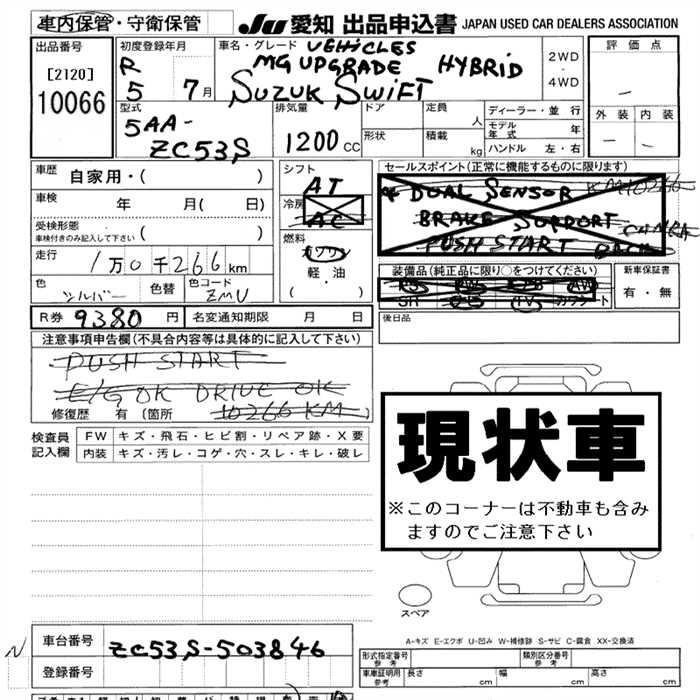 車内保管・守衛保管
JU 愛知 出品申込書 JAPAN USED CAR DEALERS ASSOCIATION
出品番号
[2120]
10066
初度登録年月
R
5 7月
車名・グレード VEHICLES
MG UPGRADE HYBRID
SUZUK SWIFT
2WD
・
4WD
評価点
外装 内装
型式
5AA-
ZC53S
排気量
1200 CC
ドア
形状
定員
人
積載
kg
ディーラー・並行
モデル年式 年
ハンドル 左・右
車歴 自家用・( )
車検 年 月( 日)
受検形態
車検付きのみ記入して下さい ( )
走行 1万0千266km
色 シルバー 色替 色コード ZMU
シフト AT
冷房 AC
燃料
ガソリン
軽・油
( ・ )
セールスポイント(正常に機能するものに限ります)
DUAL SENSOR
BRAKE SUPPORT
PUSH START
装備品(純正品に限り○をつけてください)
PS PW AW
SR TV カワシート
新車保証書
有・無
R券 9380 円 名変通知期限 月 日
後日品
注意事項申告欄(不具合内容等は具体的に記入して下さい)
PUSH START
E/G OK DRIVE OK
修復歴 有(箇所 10266KM)
検査員
記入欄
FW キズ・飛石・ヒビ割・リペア跡・X要
内装 キズ・汚レ・コゲ・穴・スレ・キレ・破レ
現状車
※このコーナーは不動車も含み
ますのでご注意下さい
スペア
A-キズ E-エクボ U-凹み W-補修跡 S-サビ C-腐食 XX-交換済
N
車台番号 ZC53S-503846
登録番号
形式指定番号
参考
類別区分番号
参考
車庫証明用
参考
長さ cm 幅 cm 高さ cm